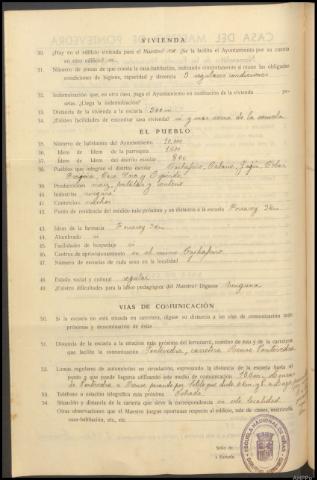 VIVIENDA
30. ¿Hay en el edificio vivienda para el Maestro? no ¿Se la facilita el Ayuntamiento por su cuenta
en otro edificio? si
31. Número de piezas de que consta la casa-habitación, indicando concretamente si reune las obligadas
condiciones de higiene, capacidad y decencia 5 regulares condiciones
32. Indemnización que, en otro caso, paga el Ayuntamiento en sustitución de la vivienda pe-
setas. ¿Llega la indemnización?
33. Distancia de la vivienda a la escuela 300 m
34. ¿Existen facilidades de encontrar casa vivienda? si y mas cerca de la escuela
EL PUEBLO
35. Número de habitantes del Ayuntamiento 10.000
36. Idem de Idem de la parroquia
37. Idem de Idem del distrito escolar 800
38. Pueblos que integran el distrito escolar
39. Producciones maiz, patatas y centeno
40. Industrias ninguna
41. Comercios muchos
42. Punto de residencia del médico más próximo y su distancia a la escuela
43. Idem de la farmacia
44. Alumbrado si
45. Facilidades de hospedaje si
46. Centros de aprovisionamiento en el mismo
47. Número de escuelas de cada sexo en la localidad
48. Estado social y cultural regular
49. ¿Existen dificultades para la labor pedagógica del Maestro? Díganse Ninguna
VIAS DE COMUNICACIÓN
50. Si la escuela no está situada en carretera, dígase su distancia a las vías de comunicación más
próximas y denominación de éstas
51. Distancia de la escuela a la estación más próxima del ferrocarril, nombre de ésta y de la carretera
que facilita la comunicación Pontevedra, carretera Orense Pontevedra
52. Líneas regulares de automóviles en circulación, expresando la distancia de la escuela hasta el
punto a que puede llegarse utilizando este medio de comunicación
de Pontevedra a Orense pasando por
53. Teléfono o estación telegráfica más próxima
54. Situación y distancia de la cartería que sirve la correspondencia en esta localidad
Otras observaciones que el Maestro juzgue oportunas respecto al edificio, sala de clases, mobiliario,
casa-habitación, etc., etc.
Sello de
la Escuela
ESCUELA NACIONAL DE NIÑAS
AHPPo